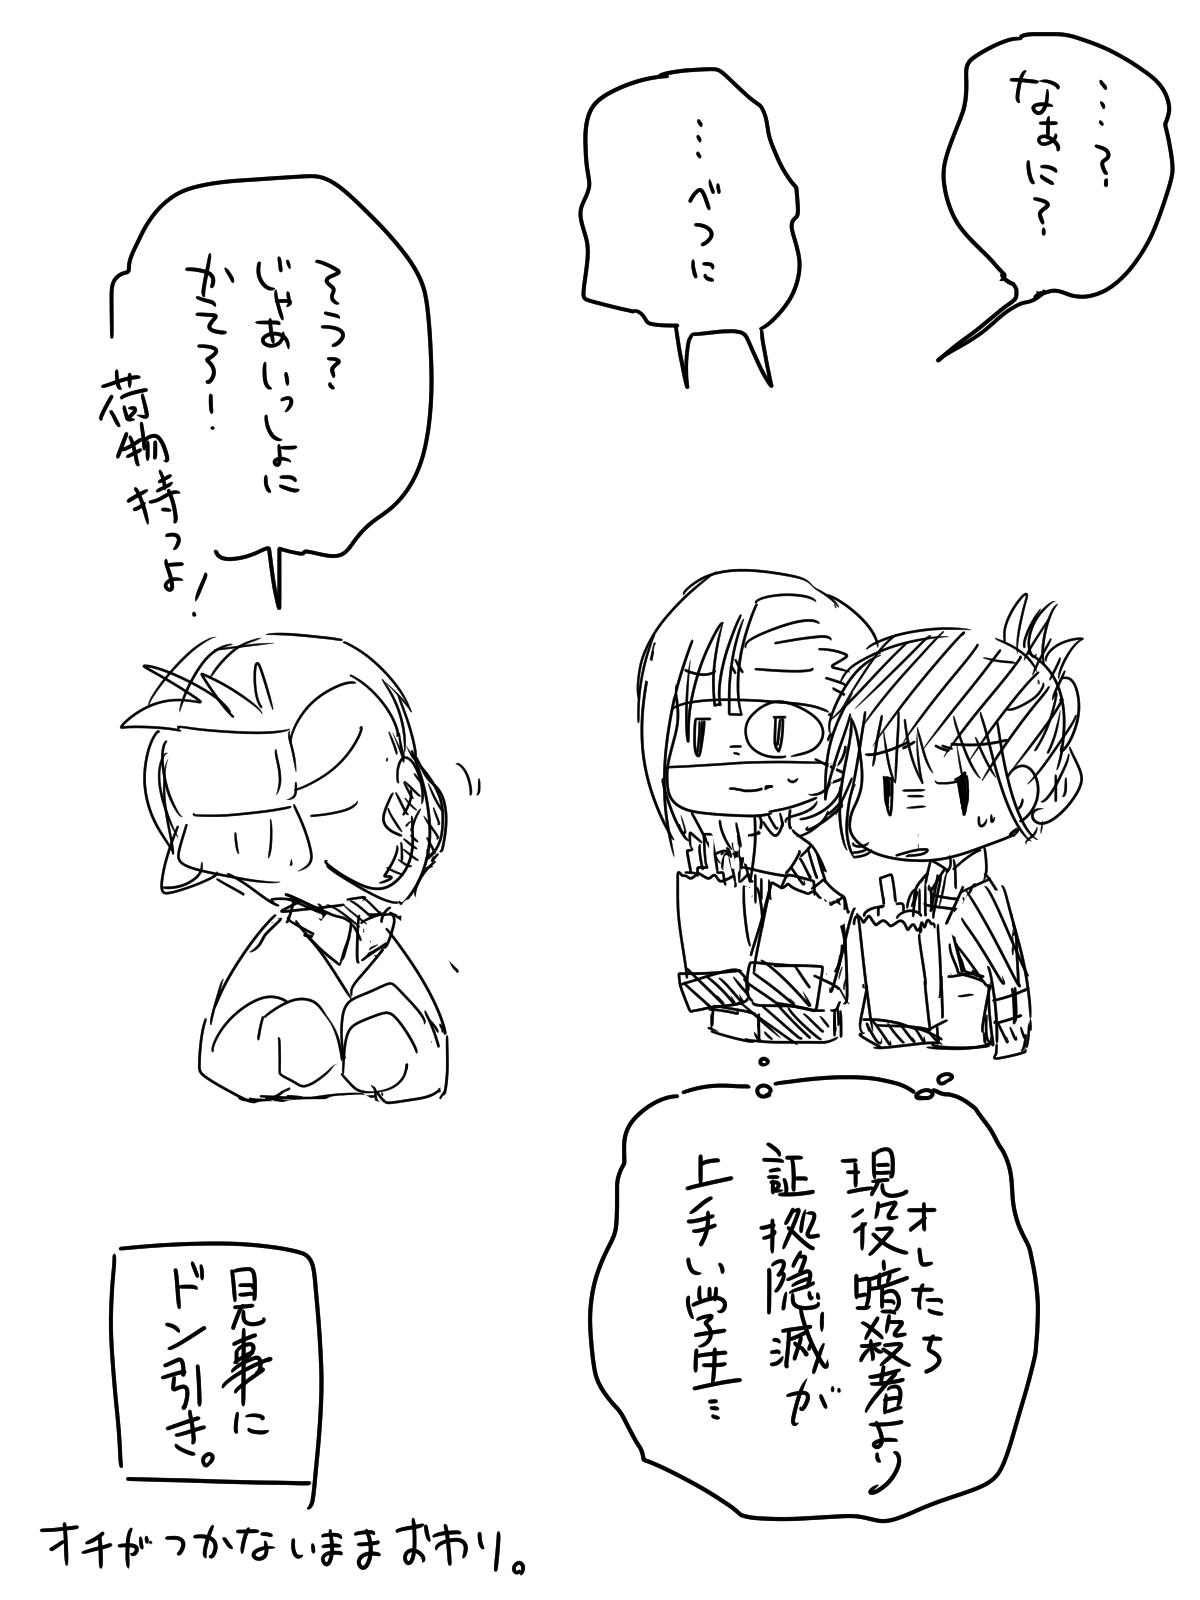 …?
なぁに?
…べつに
そう?
じゃあいっしょに
かえろ!
荷物持つよ!
オレたち
現役暗殺者より
証拠隠滅が
上手い学生…
見事に
ドン引き。
オチがつかないままおわり。